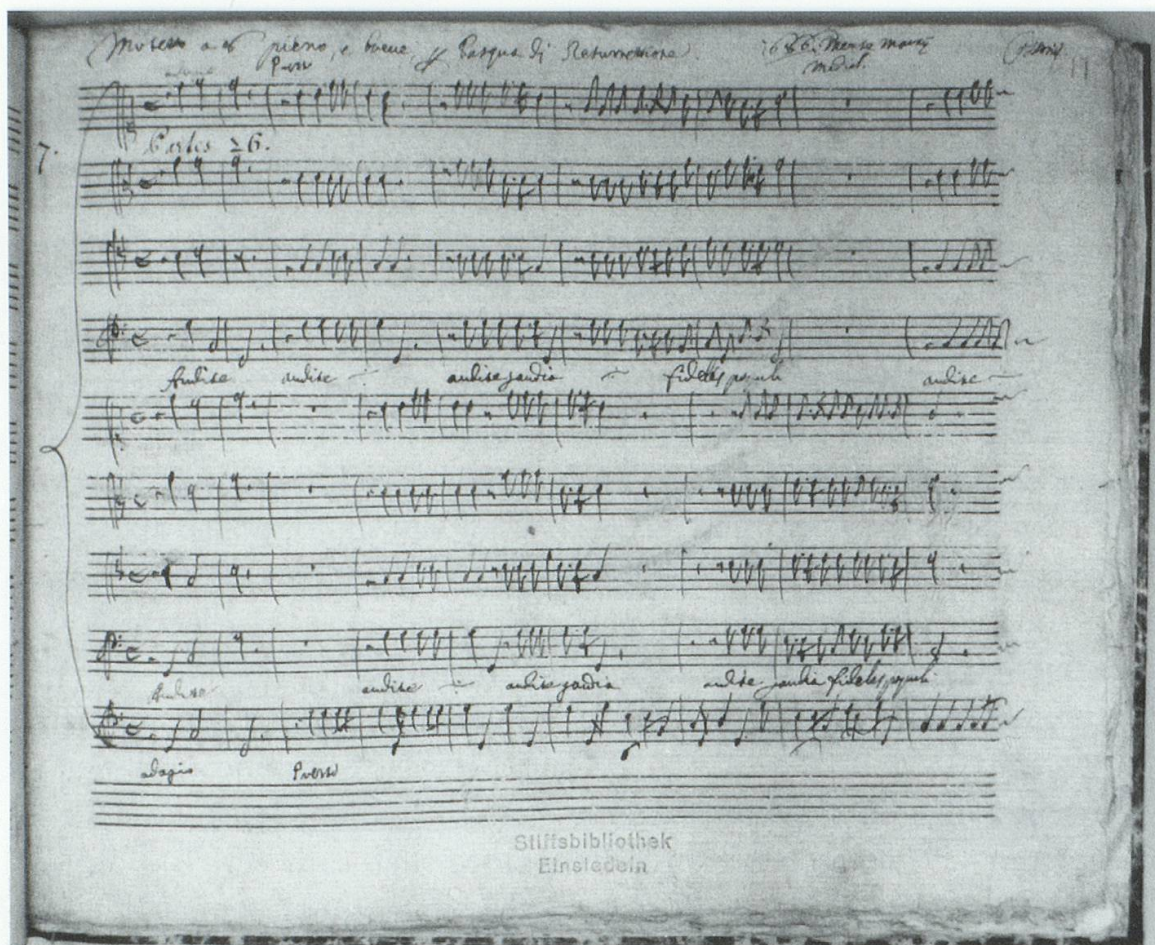 Motetto a 8 pieno, e breve p Pasqua di Resurrectione. 1686. Mense martij
Presto mediol.
11
Partes 26.
7.
Audite audite audite gaudia fideles populi audite
Audite audite audite gaudia audite gaudia fideles populi
adagio Presto
Stiftsbibliothek
Einsiedeln